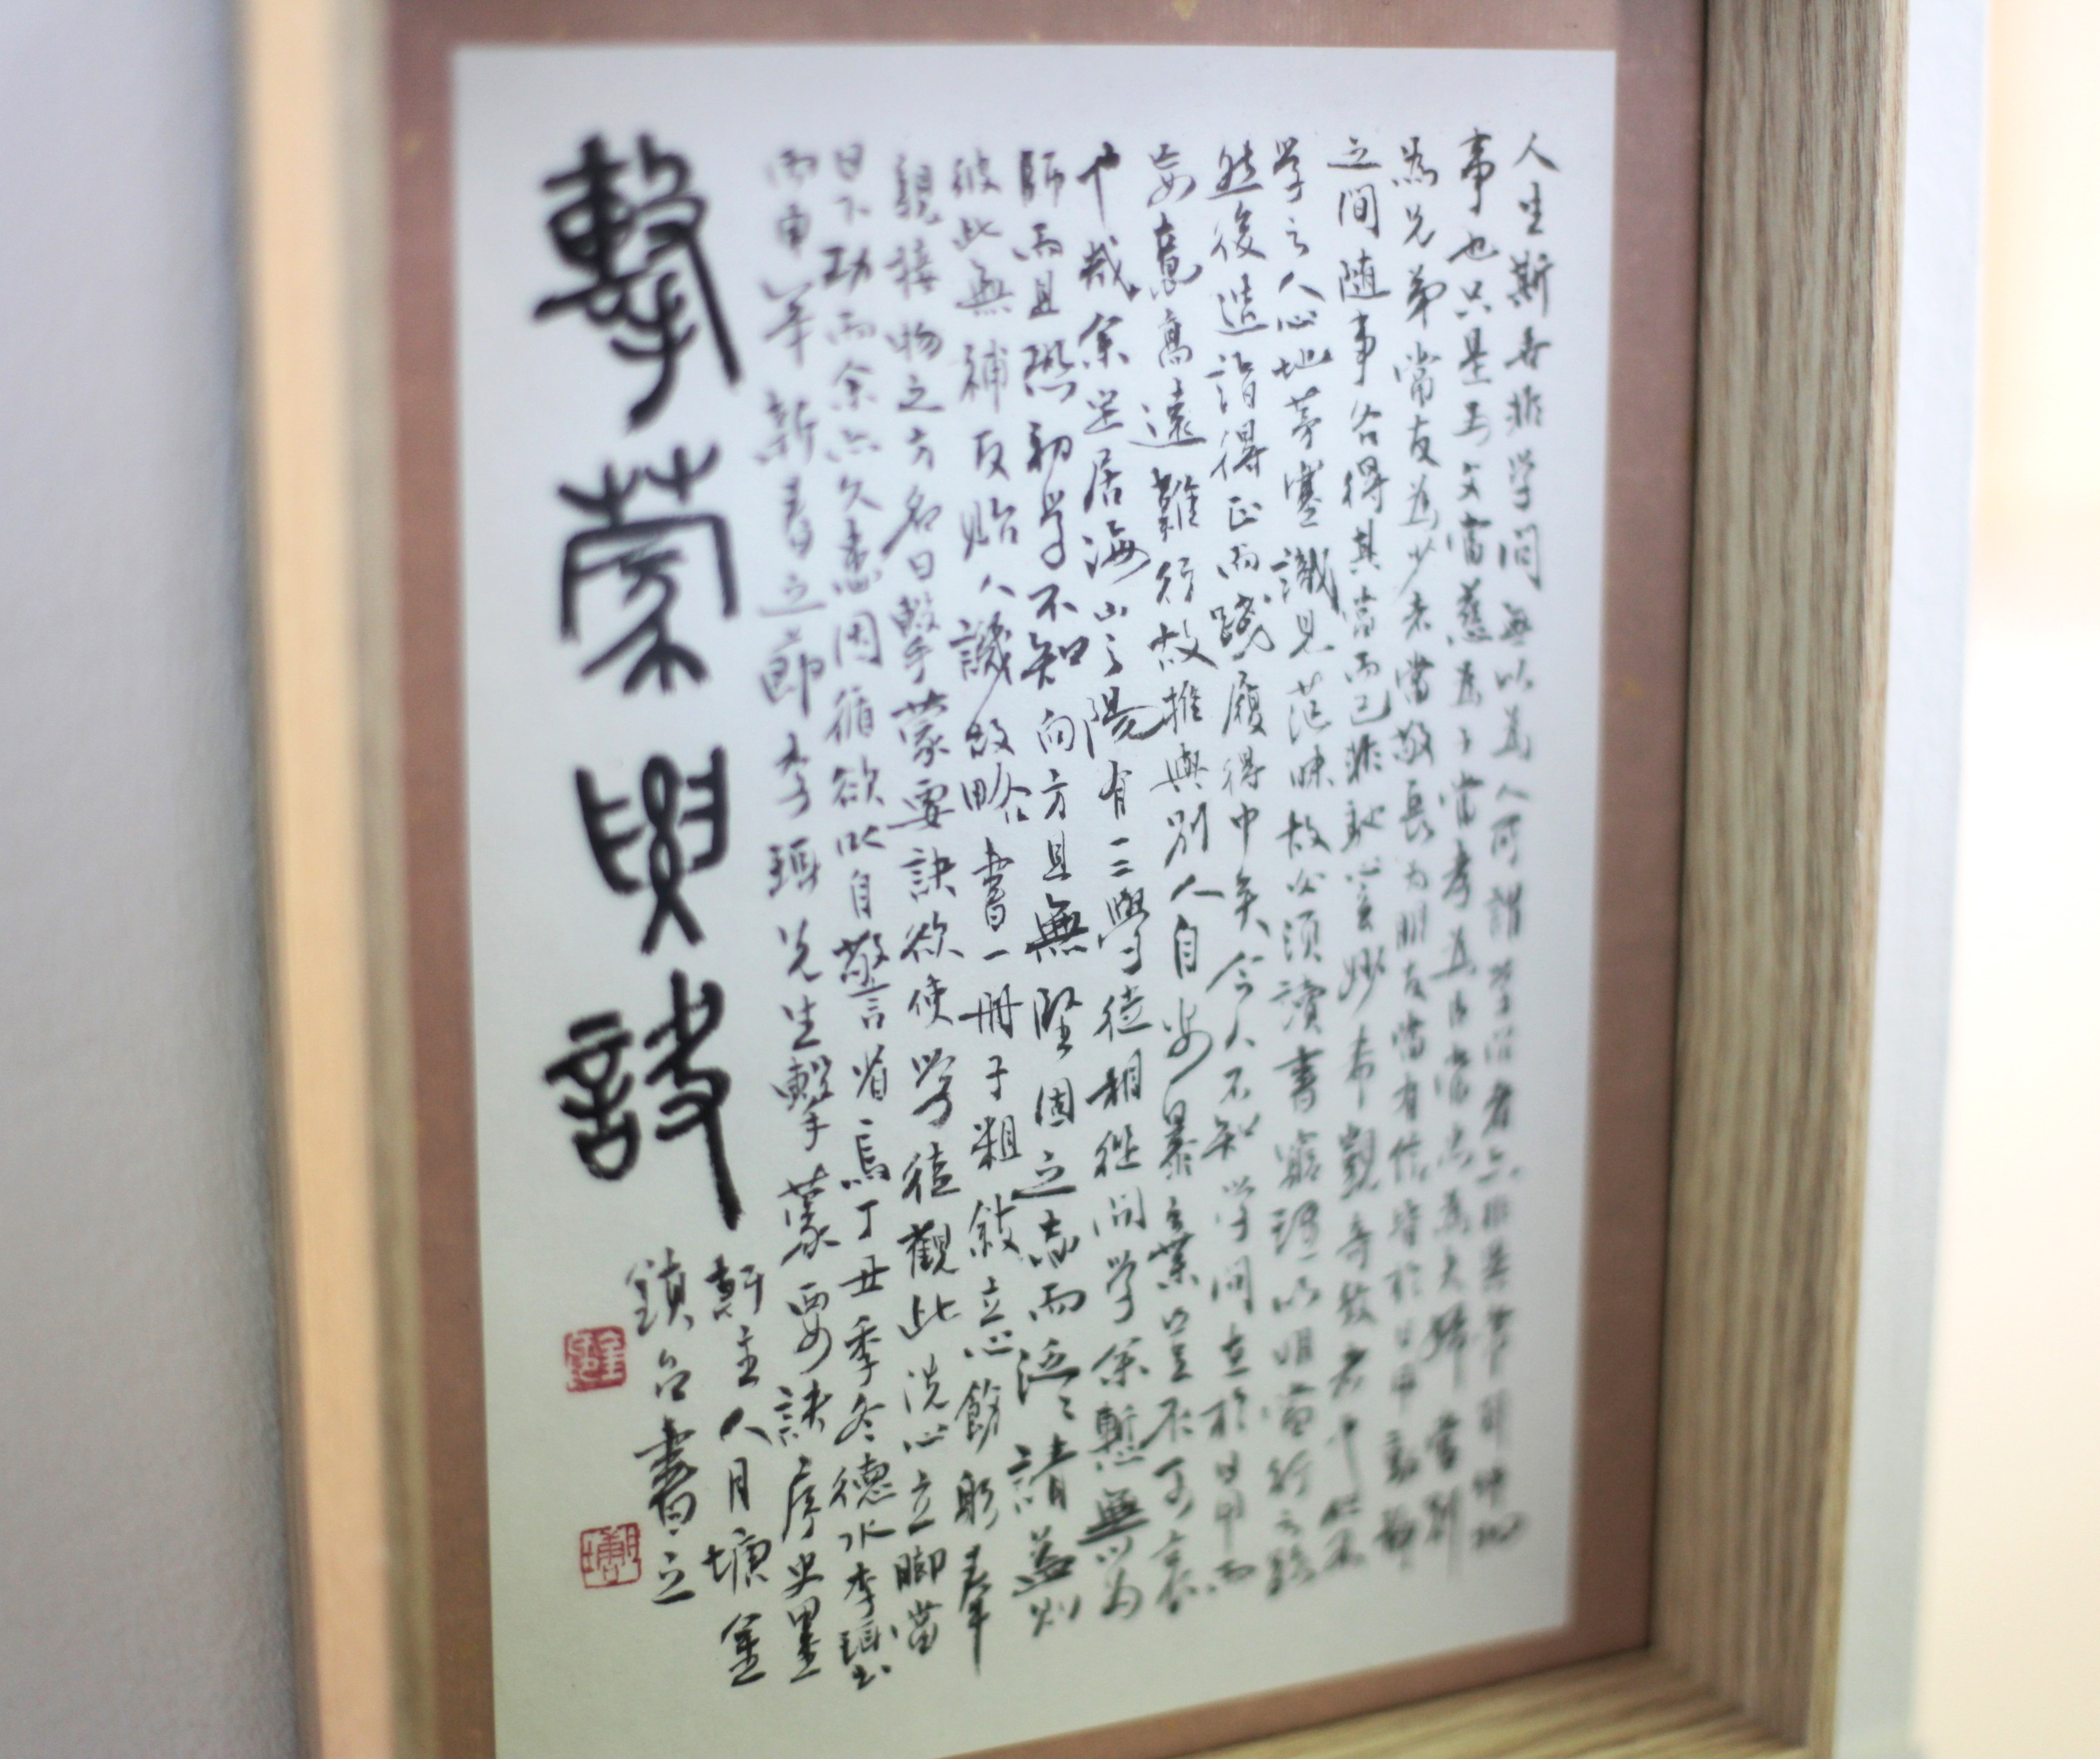 人生斯世非学問無以為人所謂学問者亦非異常別件物
事也只是為父當慈為子當孝為臣當忠為夫婦當別
為兄弟當友為少者當敬長为朋友當有信皆於日用動靜
之間随事各得其當而已非馳心玄妙希覬奇效者也但不
学之人心地茅塞識見茫昧故必須讀書窮理以明當行之路
然後造詣得正而踐履得中矣今人不知学問在於日用而
妄意高遠難行故推與別人自安暴棄豈不可哀
也哉余定居海山之陽有一二學徒相從問学余慙無以为
師而且恐初学不知向方且無堅固之志而泛々請益則
彼此無補反貽人譏故略書一冊子粗敍立心飭躬奉
親接物之方名曰擊蒙要訣欲使学徒觀此洗心立脚當
日下功而余亦久患因循欲以自警省焉丁丑季冬德水李珥書
丙申年新春之節李珥先生擊蒙要訣序文墨
軒主人月塘金
鎮台書之
擊蒙要訣